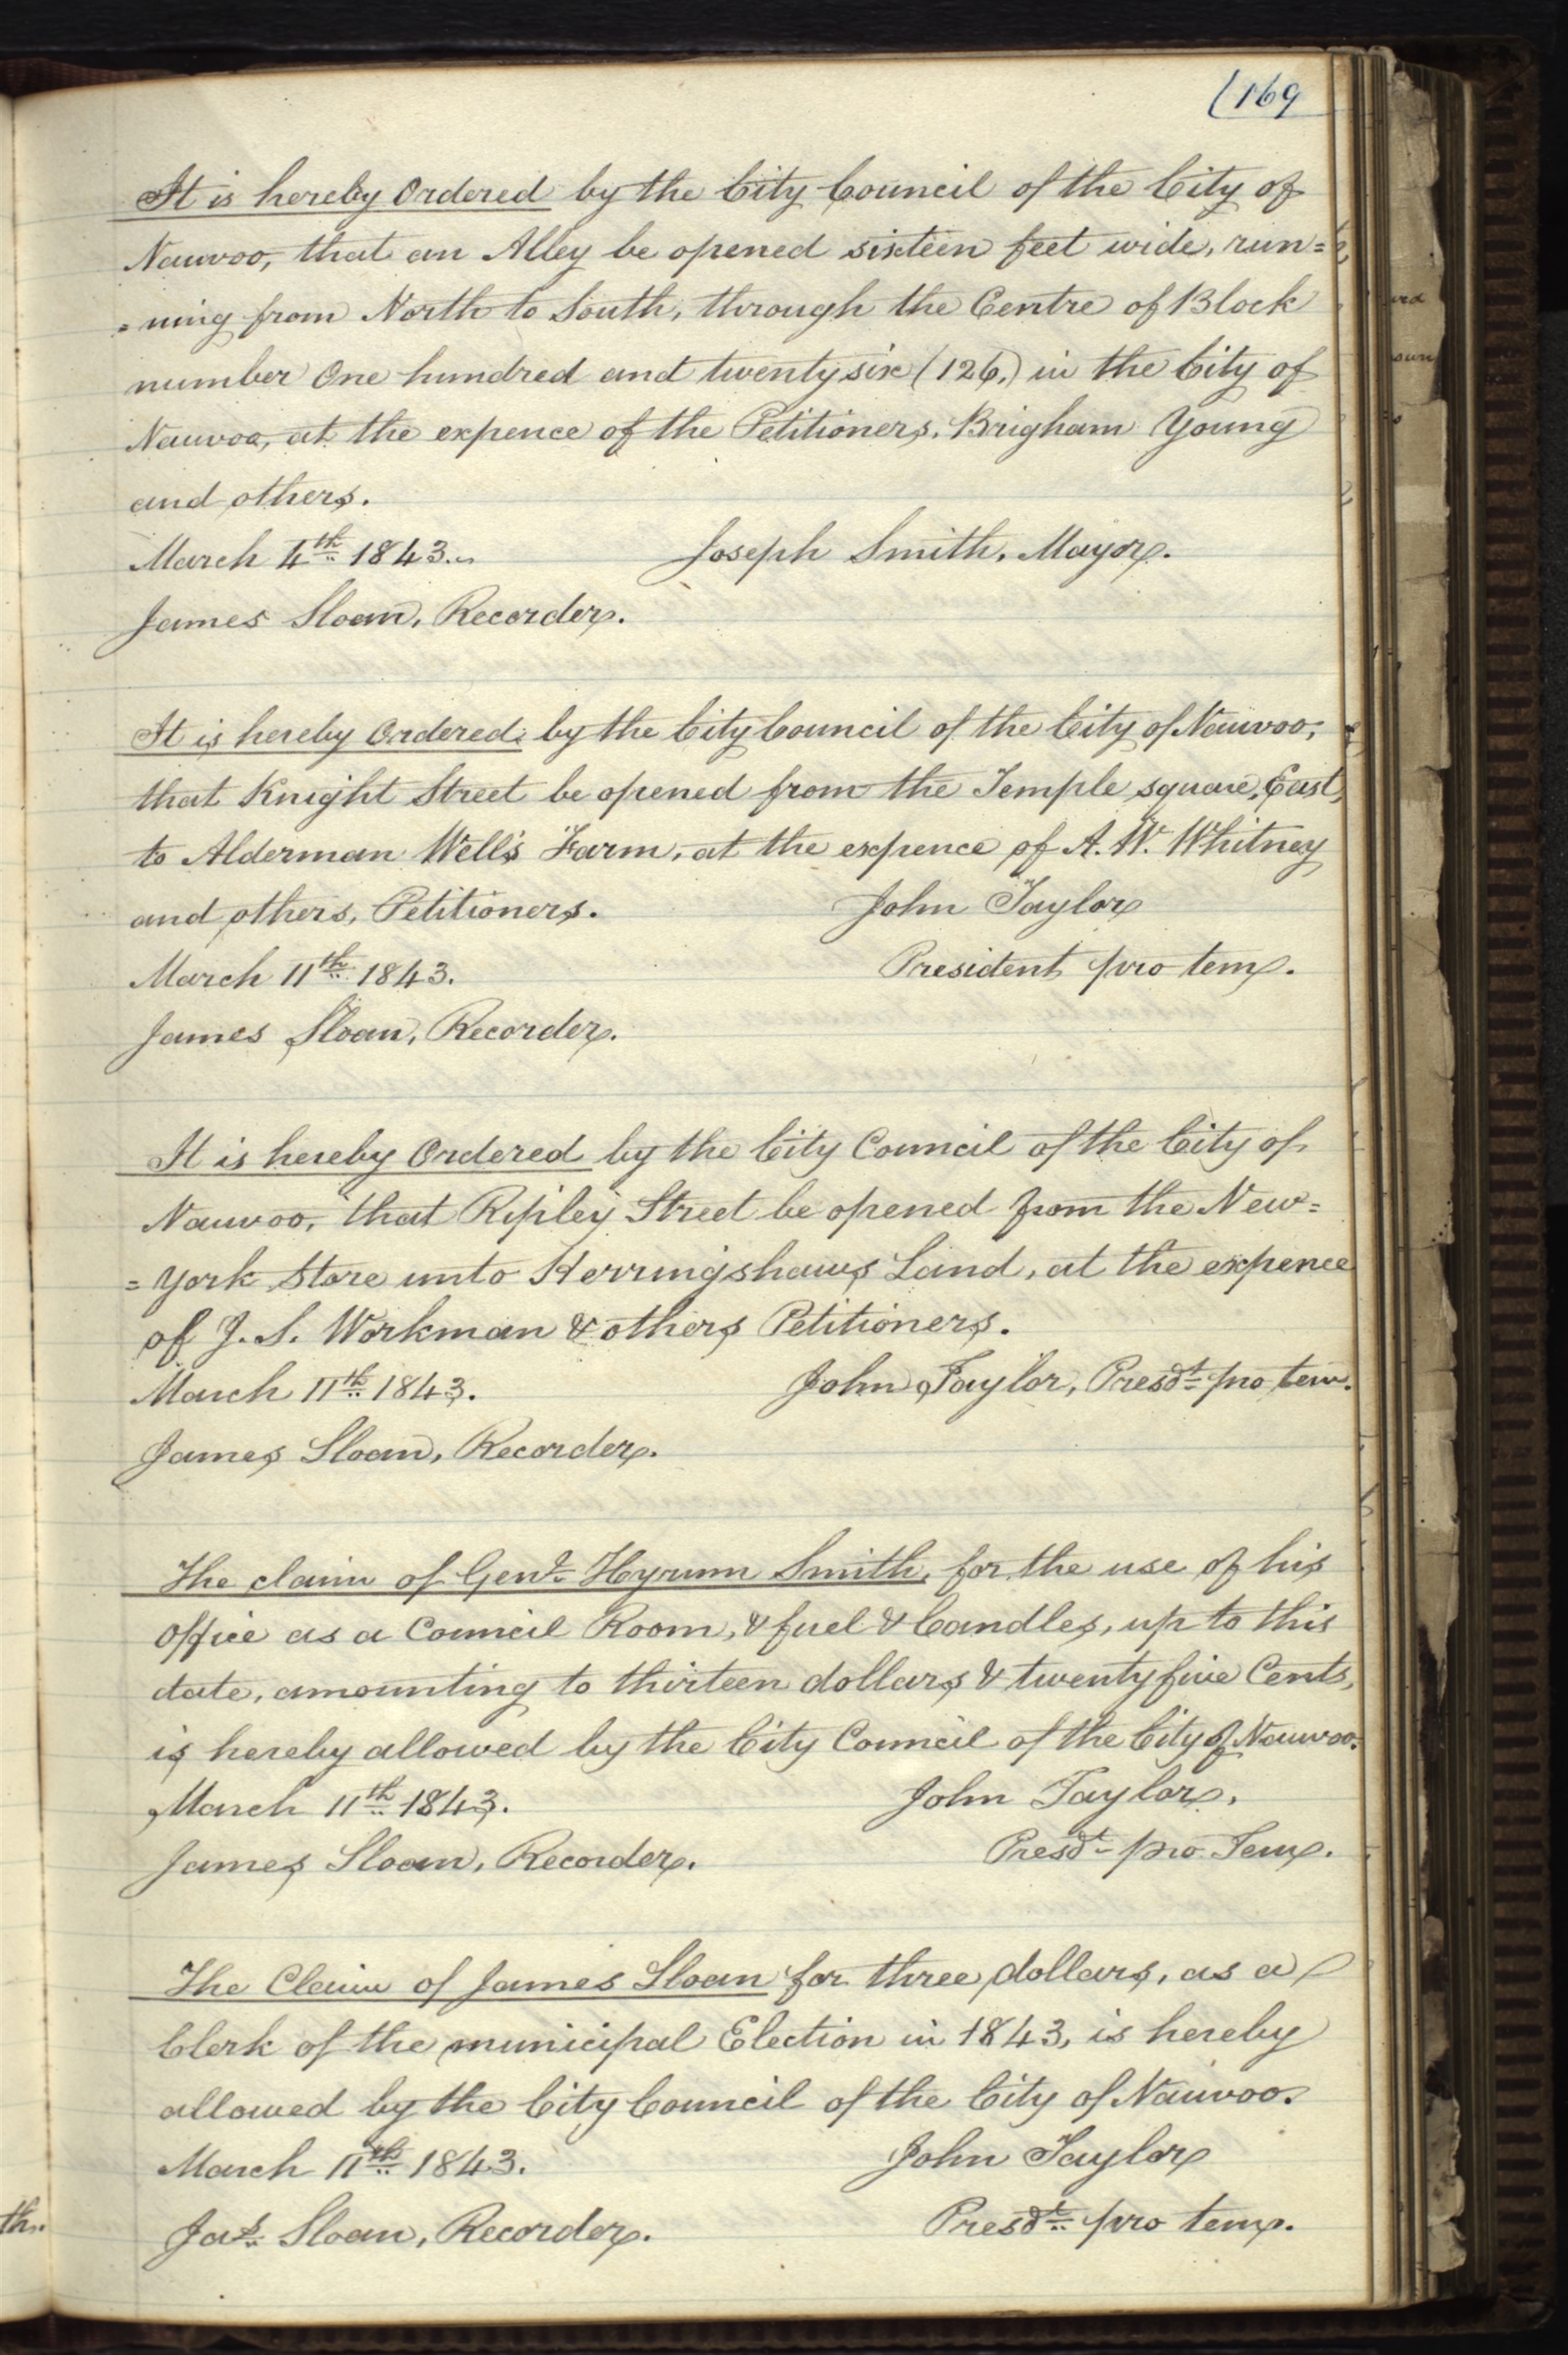 (169
It is hereby Ordered by the City Council of the City of
Nauvoo, that an Alley be opened sixteen feet wide, run=
=ning from North to South, through the Centre of Block
number One hundred and twenty six (126.) in the City of
Nauvoo, at the expence of the Petitioners, Brigham Young
and others.
March 4th 1843.
Joseph Smith, Mayor.
James Sloan, Recorder.
It is hereby Ordered, by the City Council of the City of Nauvoo,
that Knight Street be opened from the Temple square, East,
to Alderman Well's Farm, at the expence of A. W. Whitney
and others, Petitioners.
John Taylor
March 11th 1843.
President pro tem.
James Sloan, Recorder.
It is hereby Ordered by the City Council of the City of
Nauvoo, that Ripley Street be opened from the New=
=York Store unto Herringshaws Land, at the expence
of J. S. Workman & others Petitioners.
March 11th 1843.
John Taylor, Presdt pro tem.
James Sloan, Recorder.
The claim of Genl Hyrum Smith, for the use of his
Office as a Council Room, & fuel & Candles, up to this
date, amounting to thirteen dollars & twenty five Cents,
is hereby allowed by the City Council of the City of Nauvoo.
March 11th 1843.
John Taylor,
James Sloan, Recorder.
Presdt pro Tem.
The Claim of James Sloan for three dollars, as a
Clerk of the municipal Election in 1843, is hereby
allowed by the City Council of the City of Nauvoo.
March 11th 1843.
John Taylor
Jas. Sloan, Recorder.
Presdt pro tem.